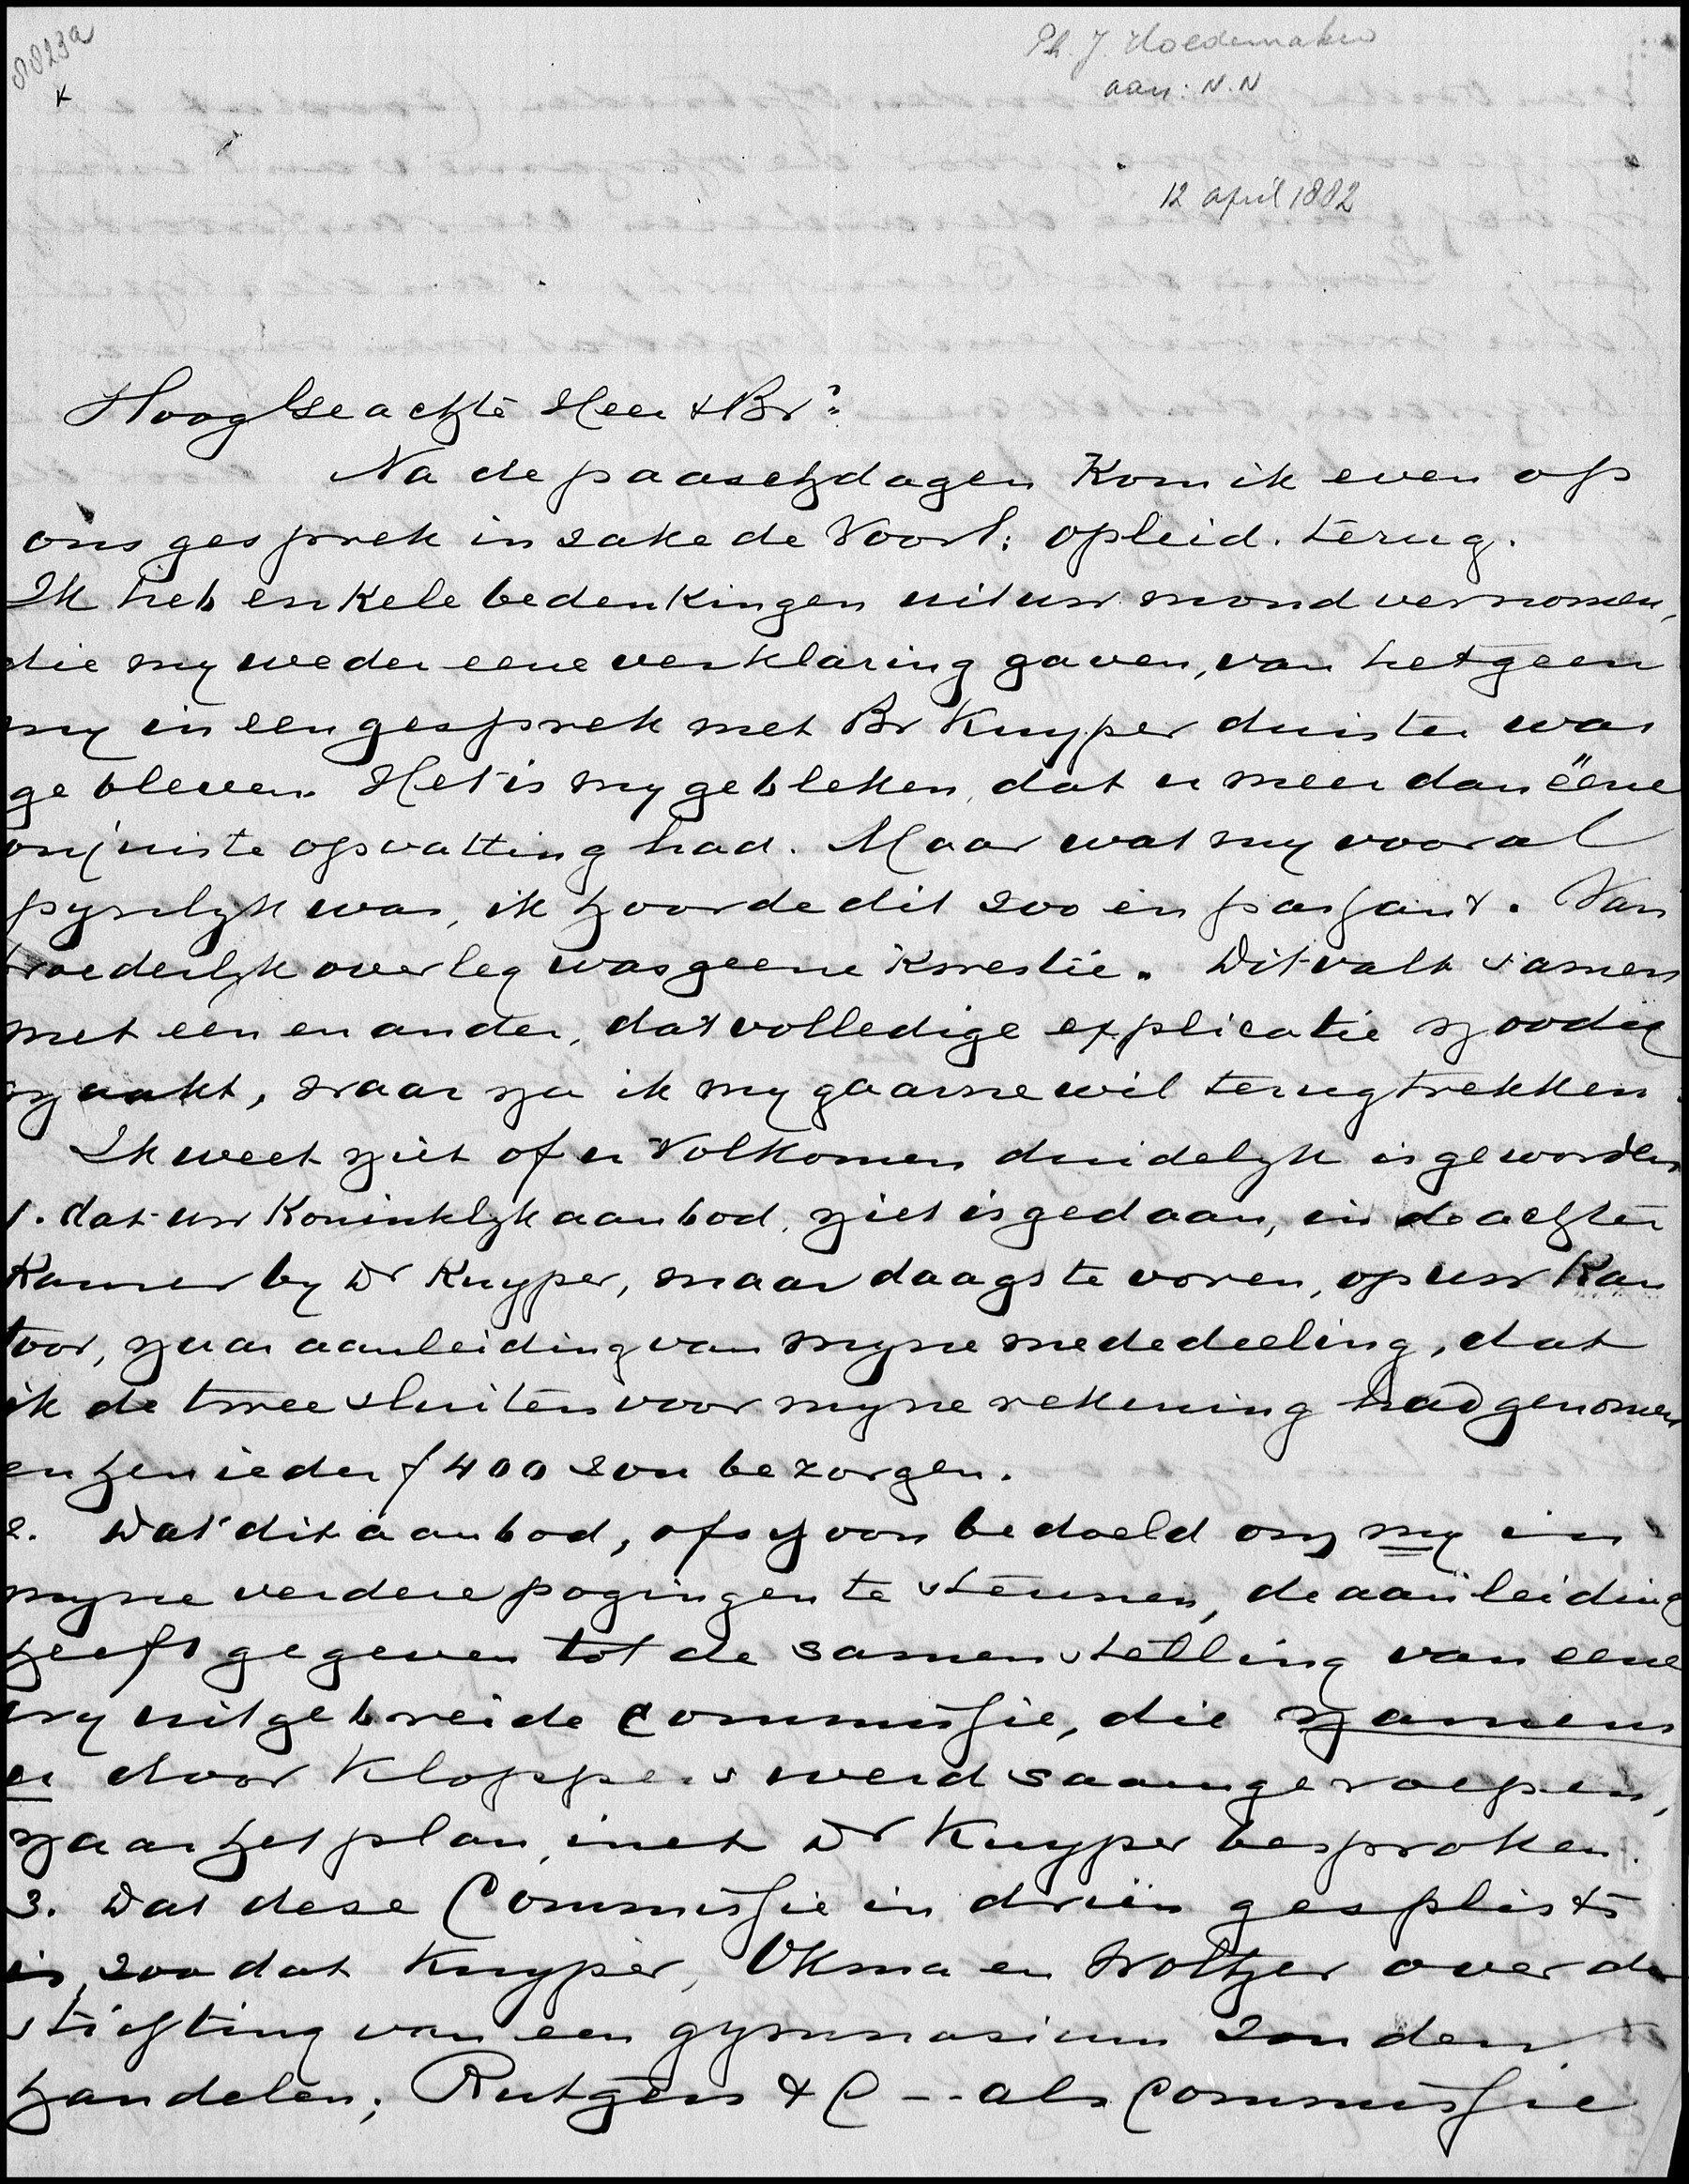 8823a
K
Ph. J. Hoedemaker
aan: N.N
12 april 1882
Hoog Geachte Heer & Br:
Na de paaschdagen kom ik even op
ons gesprek in zake de Voorl: opleid. terug.
Ik heb enkele bedenkingen uit uw mond vernomen,
die my weder eene verklaring gaven, van hetgeen
my in een gesprek met Br Kuyper duister was
gebleven. Het is my gebleken, dat u meer dan ëene
onjuiste opvatting had. Maar wat my vooral
pynlyk was, ik hoorde dit zoo en passant. Van
broederlyk overleg was geene kwestie. Dit valt samen
met een en ander, dat volledige explicatie noodig
maakt, waar na ik my gaarne wil terugtrekken.
Ik weet niet of u volkomen duidelyk is geworden
1. dat uw Koninklyk aanbod, niet is gedaan, in de achter
kamer by Dr Kuyper, maar daags te voren, op uw Kan
toor, naar aanleiding van myne mededeeling, dat
ik de twee sluiters voor myne rekening had genomen
en hen ieder f 400 zou bezorgen.
2. Dat dit aanbod, ofschoon bedoeld om my in
myne verdere pogingen te steunen, de aanleiding
heeft gegeven tot de samenstelling van eene
vry uitgebreide commissie, die namens
u door Kloppers werd saamgeroepen,
naar het plan, met Dr Kuyper besproken.
3. Dat deze Commissie in drieën gesplist
is, zoodat Kuyper, Okma en Woltjer over de
stichting van een gymnasium zouden
handelen; Rutgers & C -- als Commissie